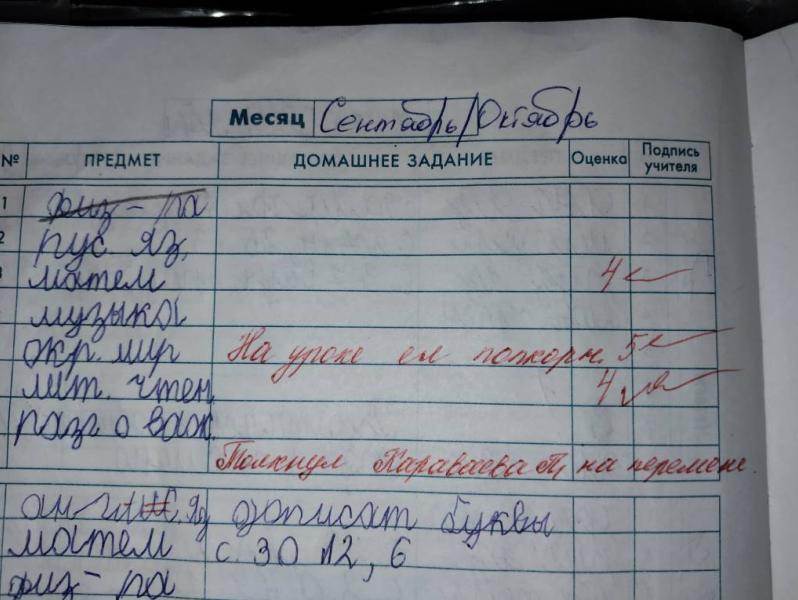 Месяц Сентябрь/Октябрь
№ ПРЕДМЕТ ДОМАШНЕЕ ЗАДАНИЕ Оценка Подпись учителя
1 физ-ра
2 рус яз.
3 матем 4
музыка
окр. мир На уроке ел попкорн. 5
лит. чтен. 4
разг о важ.
Толкнул Караваева П. на перемене.
яз дописат буквы
матем с. 30 №2, 6
физ-ра